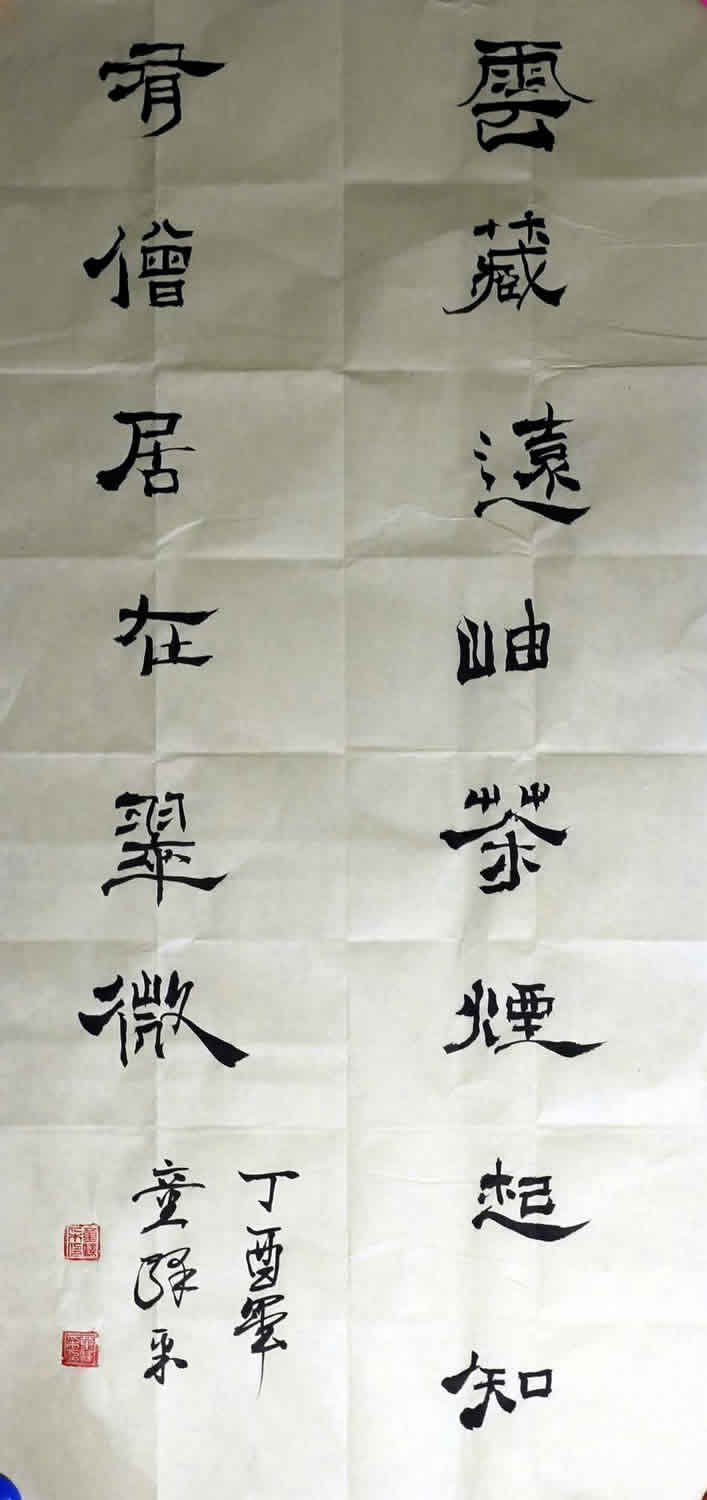 雲藏遠岫茶煙起知
有僧居在翠微
丁酉
童采